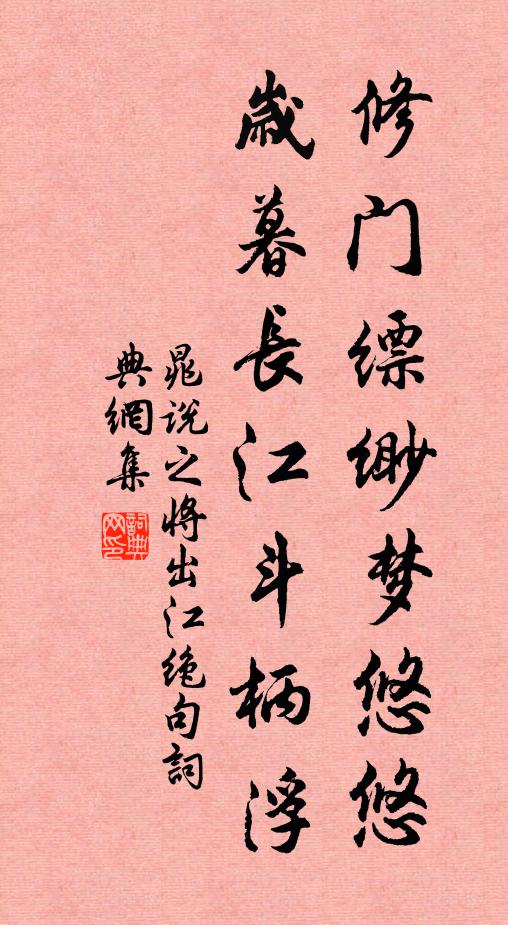 修门缥缈梦悠悠
歳暮長江斗柄浮
晁说之将出江绝句詞
典網集
詞典
网印